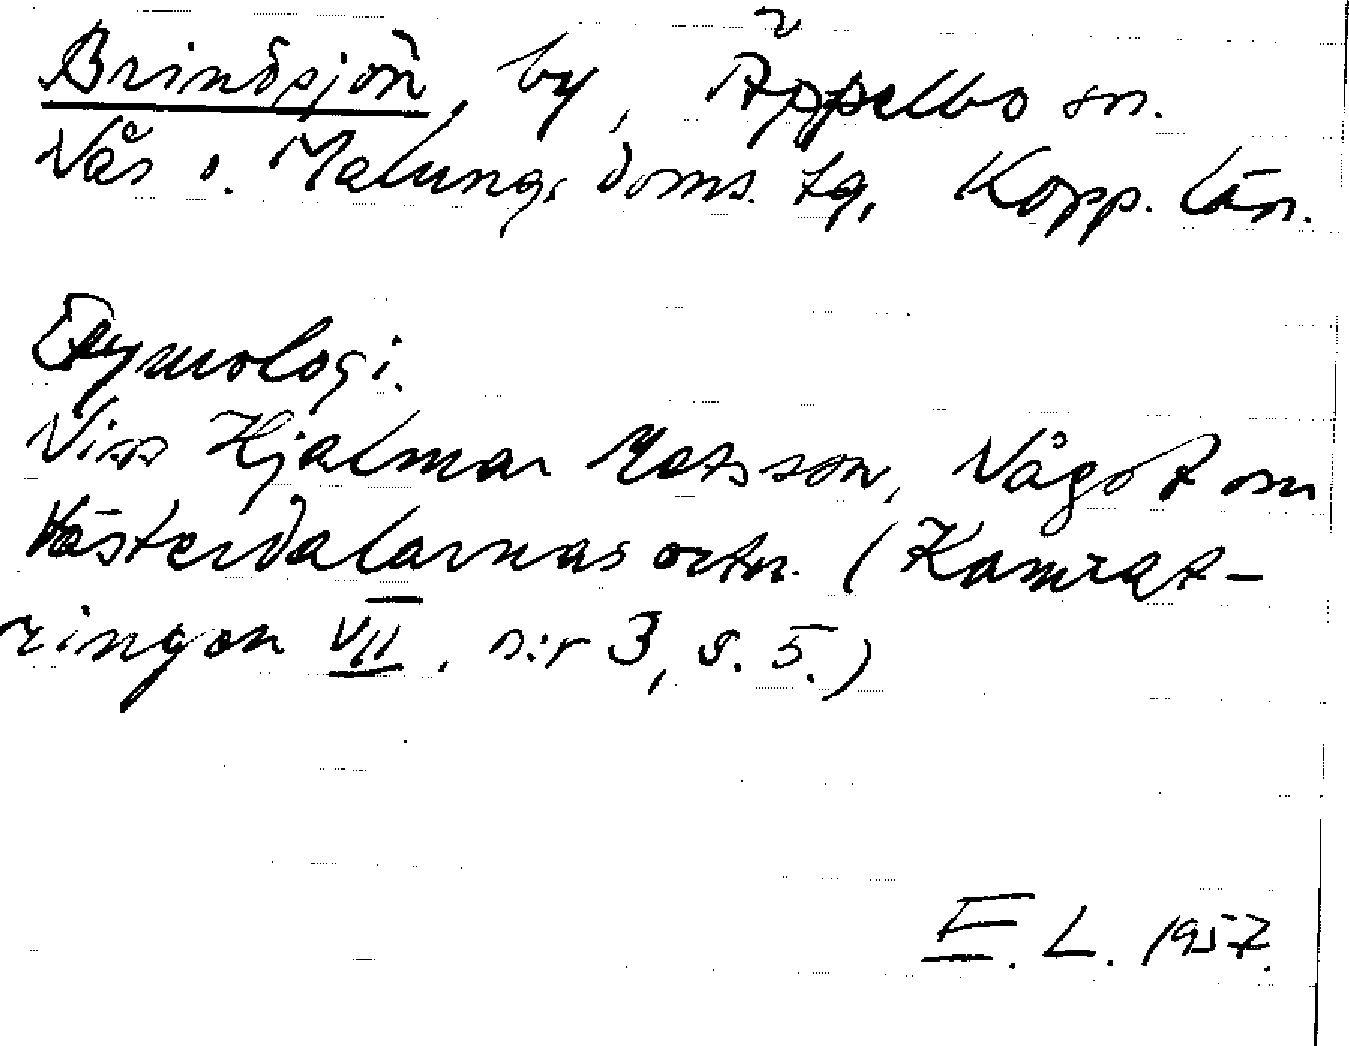 Brindsjön, by, Äppelbo sn.
Nås o. Malungs doms. tg, Kopp. län.
Etymologi.
Viss Hjalmar Matsson, Något om
Västerdalarnas ortn. (Kamrat-
ringen VII, n:r 3, s. 5.)
E. L. 1957.